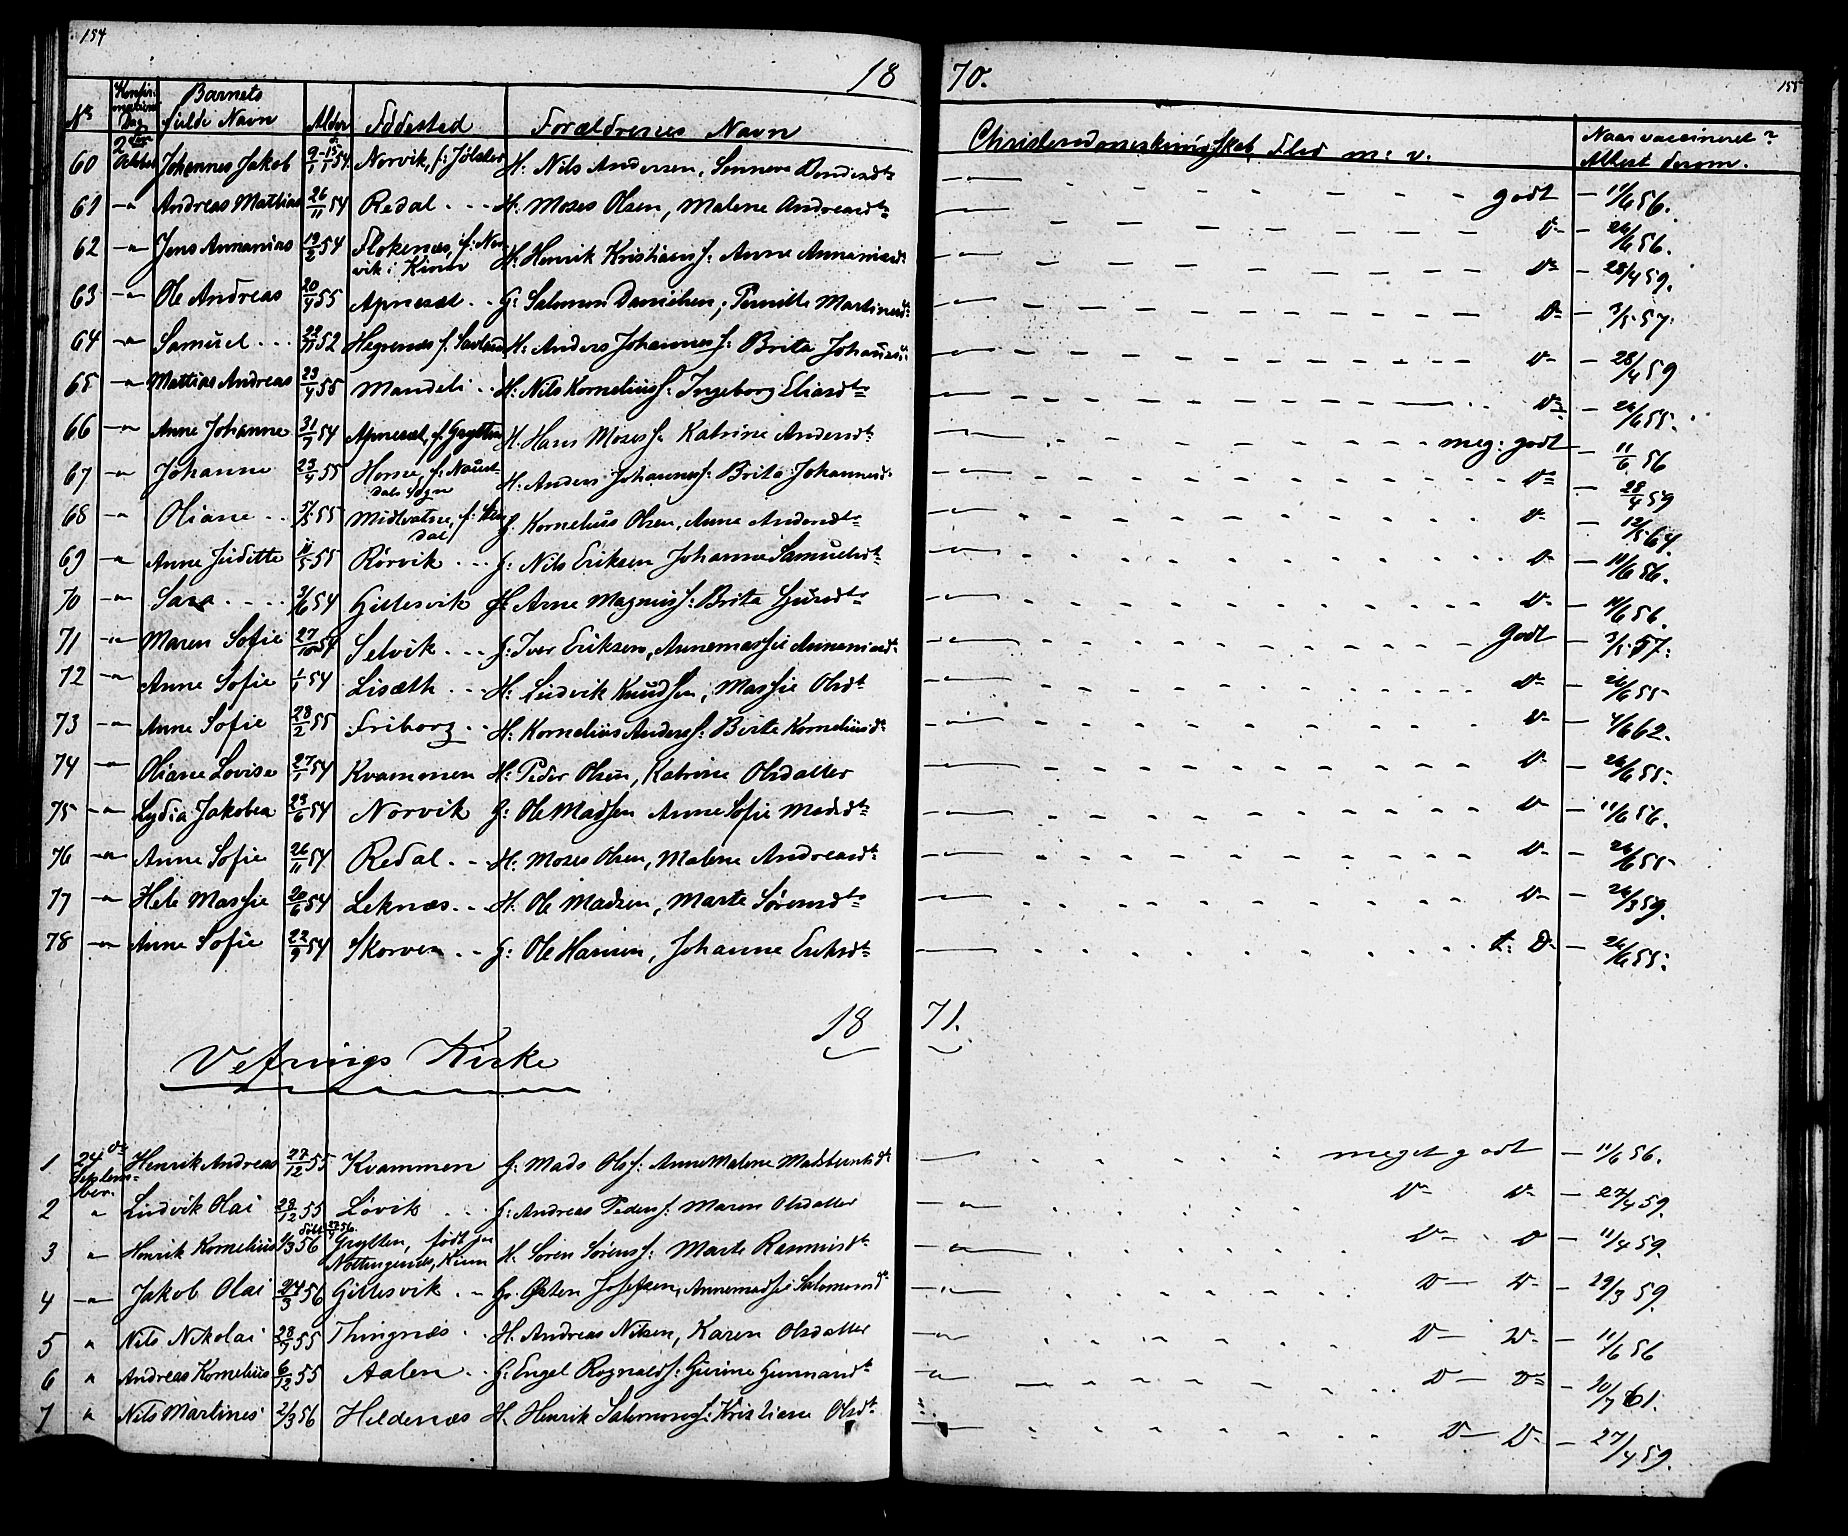 154
155
18 70.
No Konfirmations Dag Barnets fulde Navn Alder Fødested Forældrenes Navn Christendomskundskab, Flid m: v. Naar vaccineret? Attest derom.
60 2den Oktober Johannes Jakob 54 Norvik, f: Jølster H: Nils Andersen, godt — 11/6 56.
61 —"— Andreas Mattias 26/11 54 Redal - - - H: Moses Olsen, Malene Andreasdtr D° — 26/6 56.
62 —"— Jens Annanias 19/2 54 Flokenes, f: Norvik i Kinn H: Henrik Kristians f: Anne Annaniasdtr D° — 28/4 59.
63 —"— Ole Andreas 20/4 55 Apneset - - G: Salomon Danielsen, Pernille Martinusdtr D° — 3/5 57.
64 —"— Samuel - - - 52 Hegrenes f. H: Anders Johannes f: Brita Johannesd: D° — 28/4 59
65 —"— Mattias Andreas 23/4 55 Mandeli - - H: Nils Kornelius f: Ingeborg Eliasdtr D° — 26/6 55.
66 —"— Anne Johanne 54 Apneset, f. Grytten H. Hans Moses f: Katrine Andersdtr meg: godt — 11/6 56
67 —"— Johanne 23/4 55 Horne, f: Naustdals Sogn H: Anders Johannes f: Brita Johannesd: D° — 28/4 59
68 —"— Oliane - - 55 Midtvatne, f: G: Kornelius Olsen, Anne Andersdtr D° — 12/5 64.
69 —"— Anne Juditte 55 Rørvik - - - G: Nils Eriksen Johanne Samuelsdtr D° — 11/6 56.
70 —"— Sara - - - - 54 Gillesvik H: Arne Magnus f: Brita D° — 11/6 56.
71 —"— Maren Sofie 27/10 54 Selvik - - - G: Iver Eriksen, Annemassie Annaniasd: godt — 3/5 57:
72 —"— Anne Sofie 1/1 54 Liseth - - H: Ludvik Knudsen, Massie Olsdtr D° — 26/6 55
73 —"— Anne Sofie 28/2 55 Friborg - - H: Kornelius Anders f: Birte Korneliusd: D° — 62.
74 —"— Oliane Lovise 27/1 54 Kvammen H: Peder Olsen, Katrine Olsdatter D° — 26/6 55.
75 —"— Lydia Jakobea 23/6 54 Norvik G: Ole Madsen Anne Sofie Madsdtr D° — 11/6 56.
76 —"— Anne Sofie 26/11 54 Redal - - H. Moses Olsen, Malene Andreasdtr D° — 26/6 55
77 —"— Hele Massie 20/6 54 Leknæs - - H. Ole Madsen, Marte Sørensdtr D° — 26/3 59.
78 —"— Anne Sofie 22/9 54 Skorven - - G: Ole Hansen, Johanne Eriksdtr t: D° — 26/6 55.
18 71.
Vefrings Kirke
1 24de September. Henrik Andreas 27/12 55 Kvammen G: Mads Ols f: Anne Malene Madsdtr meget godt — 11/6 56.
2 " Ludvik Olai 28/12 55 Løvik - - - G: Andreas Peders f: Maren Olsdatter D° D° — 27/4 59.
3 " Henrik Kornelius 56 Grytten, født paa Kinn H. Søren Sørens f: Marte Rasmusdtr D° D — 11/4 59.
4 —"— Jakob Olai 24/3 56 Gillesvik - - G: Østen Josefsen, Annemassie Salomonsdtr D— D° — 29/3 59.
5 " Nils Nikolai 28/9 55 Thingnæs - - H. Andreas Nilsen, Karen Olsdatter D— D° — 11/6 56
6 " Andreas Kornelius 6/12 55 Aalen - - G: Engel Rognalds f: Gurine Gunnarsdtr D— D° — 10/7 61.
7 " Nils Martines 2/3 56 Heldenæs H. Henrik Salomons f: Kristiane Olsdtr D— D° — 27/4 59.